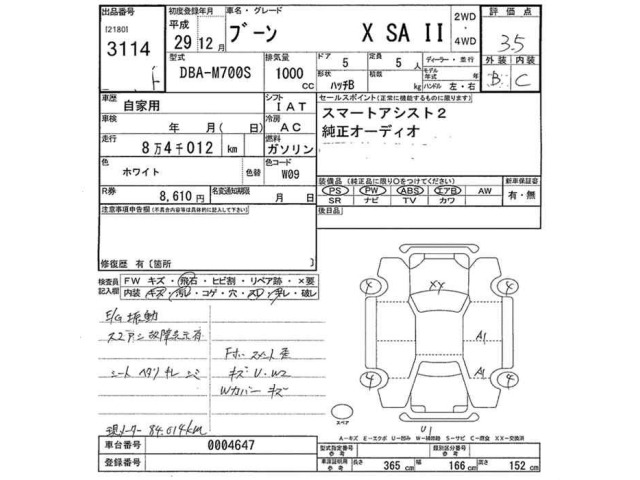 出品番号 初度登録年月 車名・グレード 2WD・4WD 評価点
[2180] 3114 F
平成 29 12月 ブーン X SA II 3.5
型式 排気量 ドア 5 定員 5人 ディーラー・並行 外装 内装
DBA-M700S 1000 cc 形状 ハッチB 積載 kg モデル年式 年 ハンドル 左・右 B C
車歴 自家用 シフト IAT セールスポイント(正常に機能するものに限ります)
車検 年 月( 日) 冷房 AC スマートアシスト2
走行 8万4千012 km 燃料 ガソリン 純正オーディオ
色 ホワイト 色替 色コード W09
装備品(純正品に限り○をつけてください) 新車保証書
R券 8,610円 名変通知期限 月 日 PS PW ABS エアB AW 有・無
SR ナビ TV カワ
注意事項申告欄(不具合内容等は具体的に記入して下さい) 後日品
修復歴 有[箇所 ]
検査員記入欄 FW キズ・飛石・ヒビ割・リペア跡・×要
内装 キズ・汚レ・コゲ・穴・スレ・劣レ・破レ
E/G 振動
スマアシ故障表示有
シート ヘタリ
キズ U.W2
Wカバー キズ
現メーター 84,014km
4 4 4 4
XX
A1
A1
U1
スペア
A-キズ E-エクボ U-凹み W-補修跡 S-サビ C-腐食 XX-交換済
車台番号 0004647 型式指定番号 参考 類別区分番号 参考
登録番号 車庫証明用 参考 長さ 365 cm 幅 166 cm 高さ 152 cm